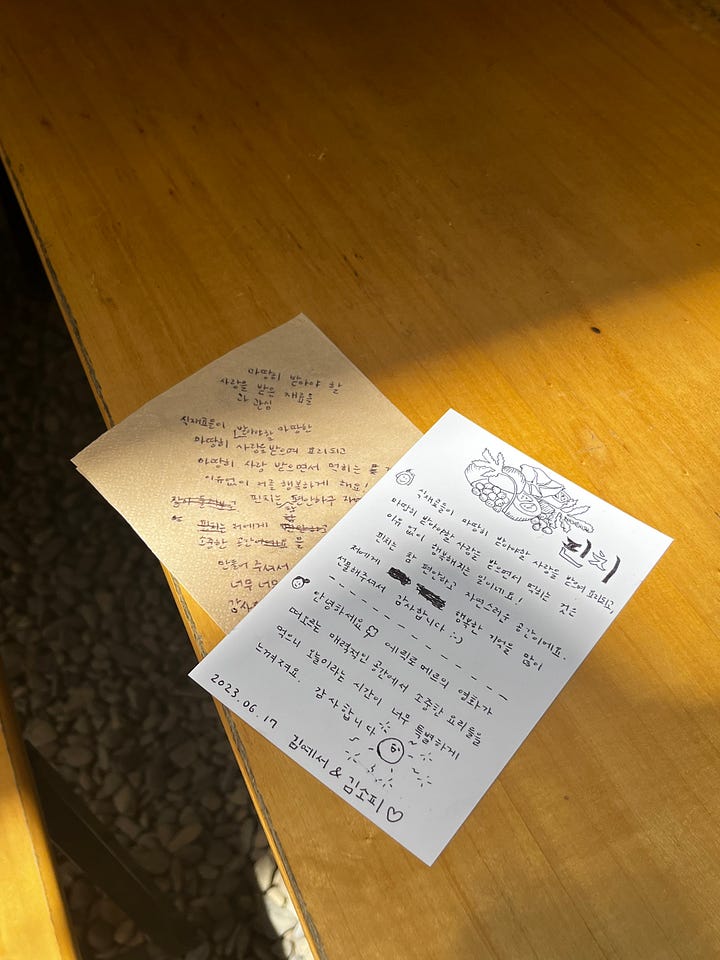 마땅히 받아야 할
사랑을 받은 재료들
과 관심
식재료들이 받아야할 마땅한
마땅히 사랑받으며 요리되고
마땅히 사랑 받으면서 먹히는
이유없이 저를 행복하게 해요!
핀치는 편안하구
핀치는 저에게
소중한 공간 을
만들어 주셔서
너무 너무
감사
핀치
식재료들이 마땅히 받아야할 사랑을 받으며 요리되고,
마땅히 받아야할 사랑을 받으면서 먹히는 것은
이유 없이 행복해지는 일이네요!
핀치는 참 편안하고 자연스러운 공간이에요.
저에게 행복한 기억을 많이
선물해주셔서 감사합니다 :-)
안녕하세요 에릭로메르의 영화가
떠오르는 매력적인 공간에서 소중한 요리들을
먹으니 오늘이라는 시간이 너무 특별하게
느껴져요.
감사합니다
2023.06.17
김예서 & 김소피 ♡